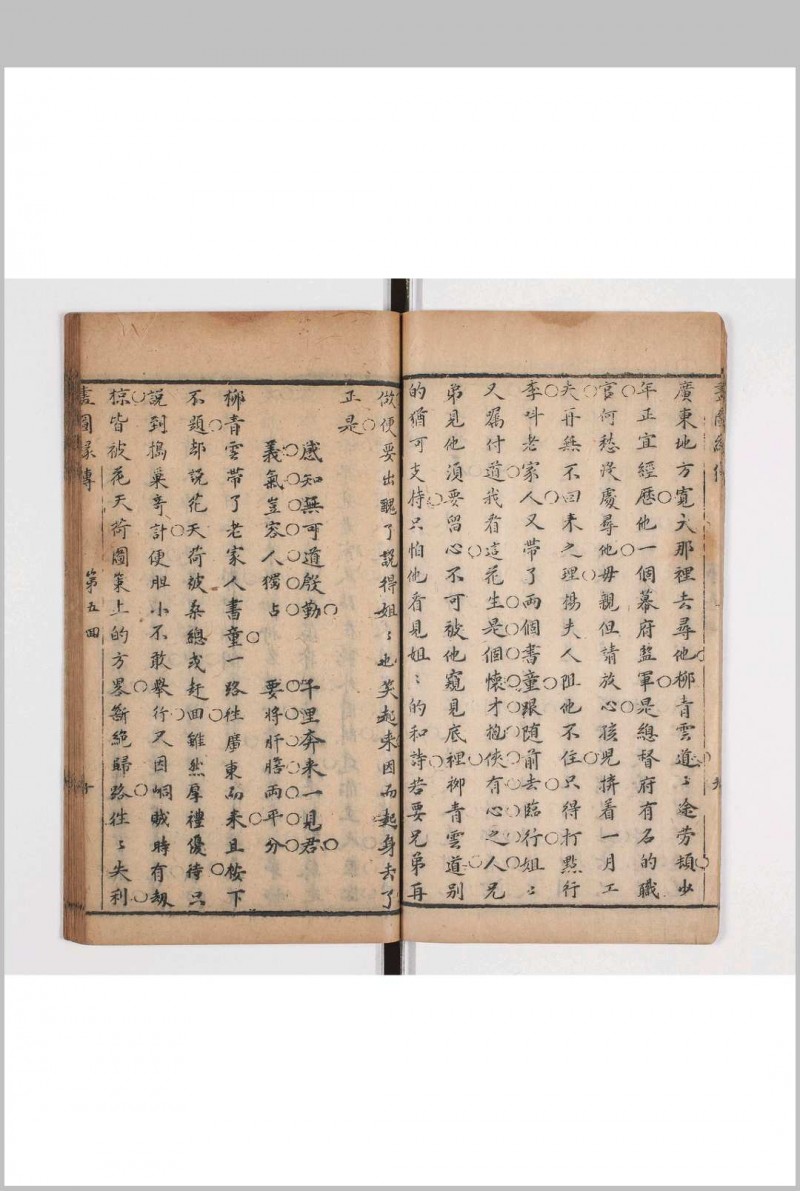 廣東地方寬大那裡去尋他柳青雲道〻途勞頓少
年正宜經歷他一個幕府監軍是總督府有名的職
官何愁没處尋他毋親但請放心孩兒擠着一月工
夫再無不回来之理楊夫人阻他不住只得打㸃行
李呌老家人又带了兩個書童跟随前去臨行姐〻
又嘱付道我看這花生是個懷才抱俠有心之人兄
弟見他湏要留心不可被他窺見底裡栁青雲道别
的猶可支持只怕他看見姐〻的和詩若要兄弟再
做便要出醜了説得姐〻也笑起来因而起身去了
正是
感知無可道殷勤　千里奔来一見君
義氣豈容人獨占　要將肝膽兩平分
柳青雲帶了老家人書童一路徃廣東而来且按下
不題却説花天荷被桑總戎赶回雖然厚禮優待只
説到搗巢竒計便胆小不敢舉行又因峒賊時有刼
掠皆被花天荷圖䇿上的方畧斷絶歸路徃〻失利
畫圖緣傳
第五回